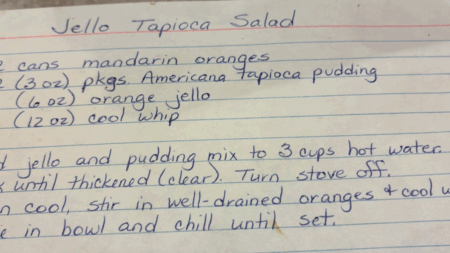 Jello Tapioca Salad
cans mandarin oranges
(3 oz) pkgs. Americana tapioca pudding
(6 oz) orange jello
(12 oz) cool whip
jello and pudding mix to 3 cups hot water.
until thickened (clear). Turn stove off.
cool, stir in well-drained oranges + cool
in bowl and chill until set.